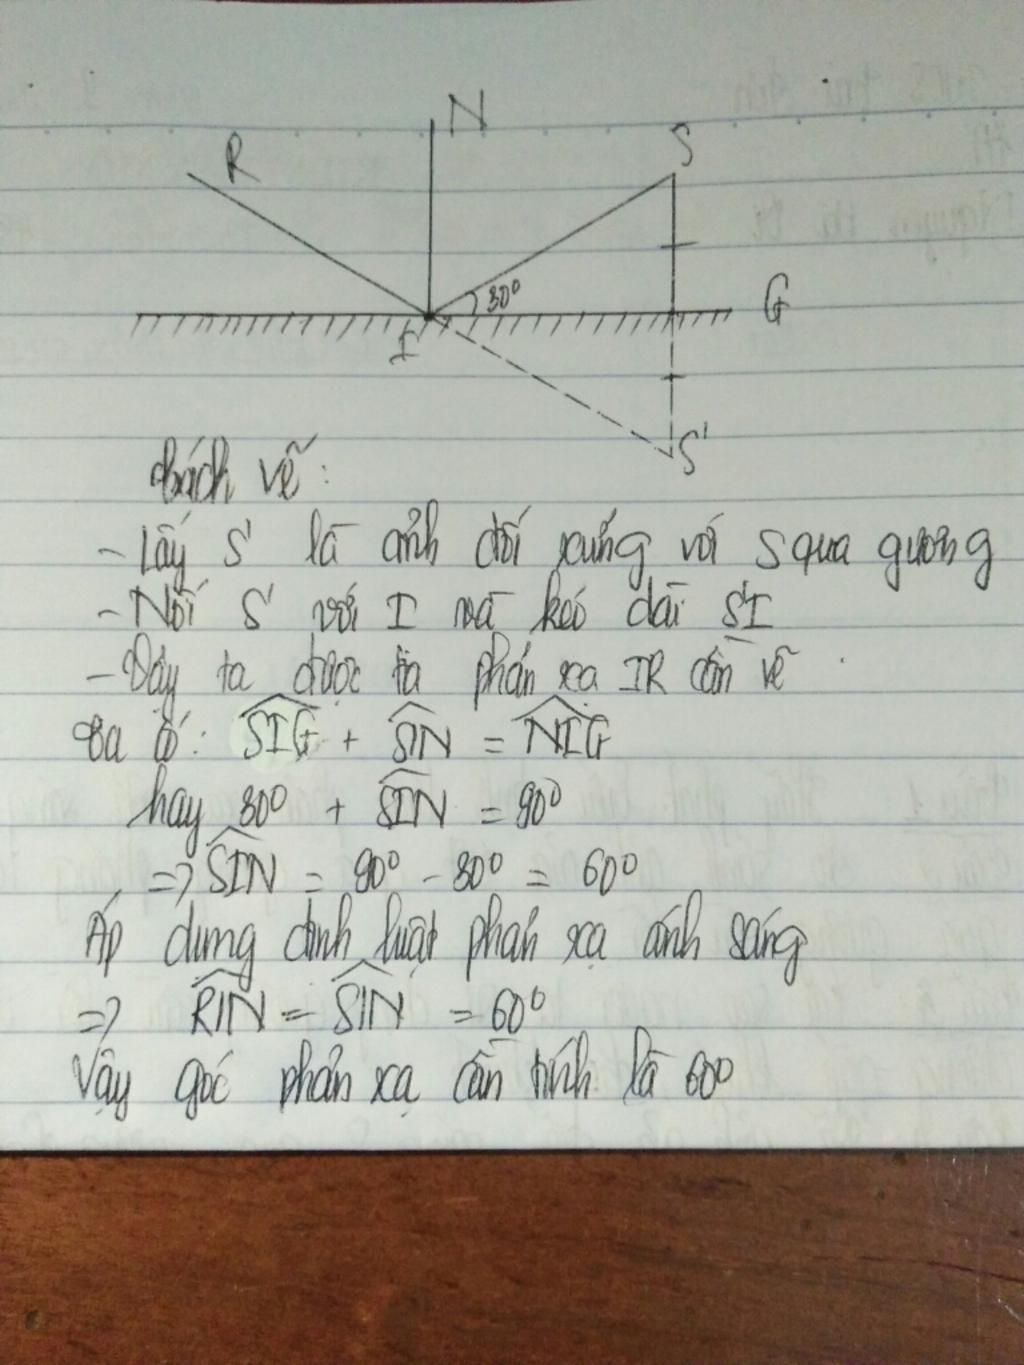 N
R
S
30°
G
I
S'
Cách vẽ:
- Lấy S' là ảnh đối xứng với S qua gương
- Nối S' với I và kéo dài S'I
- Vậy ta được tia phản xạ IR cần vẽ
Ta có: SIG + SIN = NIG
hay 30° + SIN = 90°
=> SIN = 90° - 30° = 60°
Áp dụng định luật phản xạ ánh sáng
=> RIN = SIN = 60°
Vậy góc phản xạ cần tính là 60°